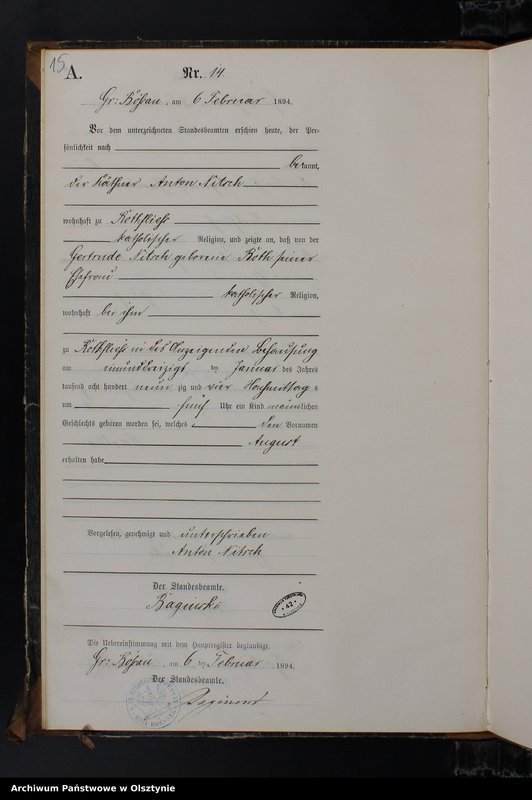 15
A.
Nr. 14
Gr: Bößau, am 6 Februar 1894.
Vor dem unterzeichneten Standesbeamten erschien heute, der Per-
sönlichkeit nach
bekannt,
der Käthner Anton Nitsch
wohnhaft zu Rothfließ
katholischer Religion, und zeigte an, daß von der
Gertrude Nitsch geborene Roth seiner
Ehefrau
katholischer Religion,
wohnhaft bei ihm
zu Rothfließ in des Anzeigenden Behausung
am einunddreizigst ten Januar des Jahres
tausend acht hundert neun zig und vier Nachmittag s
um fünf Uhr ein Kind männlichen
Geschlechts geboren worden sei, welches den Vornamen
August
erhalten habe
Vorgelesen, genehmigt und unterschrieben
Anton Nitsch
Der Standesbeamte.
Baginski
42
Die Uebereinstimmung mit dem Hauptregister beglaubigt.
Gr: Bößau, am 6 ten Februar 1894.
Der Standesbeamte.
Archiwum Państwowe w Olsztynie